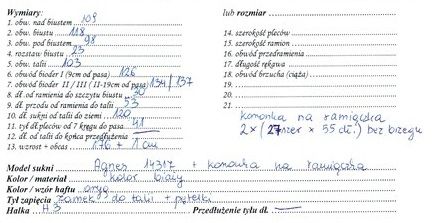 Wymiary:
1. obw. nad biustem 109
2. obw. biustu 118
3. obw. pod biustem 98
4. rozstaw biustu 23
5. obw. talii 103
6. obwód bioder I (9cm od pasa) 126
7. obwód bioder II / III (11-19cm od pasa) 134 / 137
8. dł. od ramienia do szczytu biustu 30
9. dł. przodu od ramienia do talii 53
10. dł. sukni od talii do ziemi 120
11. tył dł. pleców od 7 kręgu do pasa 41
12. dł. od talii do końca przedłużenia
13. wzrost + obcas 176 + 1 cm
lub rozmiar
14. szerokość pleców
15. szerokość ramion
16. obwód przedramienia
17. długość rękawa
18. obwód brzucha (ciąża)
19.
20.
21.
koronka na ramiączka
2 x ( 27 szer x 55 dł.) bez brzegu
Model sukni Agnes 14317 + koronka na ramiączka
Kolor / materiał kolor biały
Kolor / wzór haftu
Tył zapięcia zamek do talii + pętelki
Halka H-3 Przedłużenie tyłu dł.